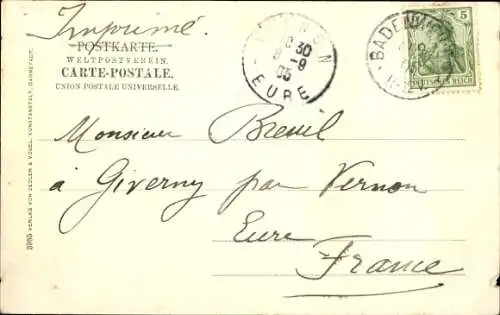 Imprimé.
POSTKARTE.
WELTPOSTVEREIN.
CARTE-POSTALE.
UNION POSTALE UNIVERSELLE.
30
EURE
BADEN
5
DEUTSCHES REICH
Monsieur Breuil
à Giverny par Vernon
Eure
France
3905 VERLAG VON ZEDLER & VOGEL, KUNSTANSTALT, DARMSTADT.